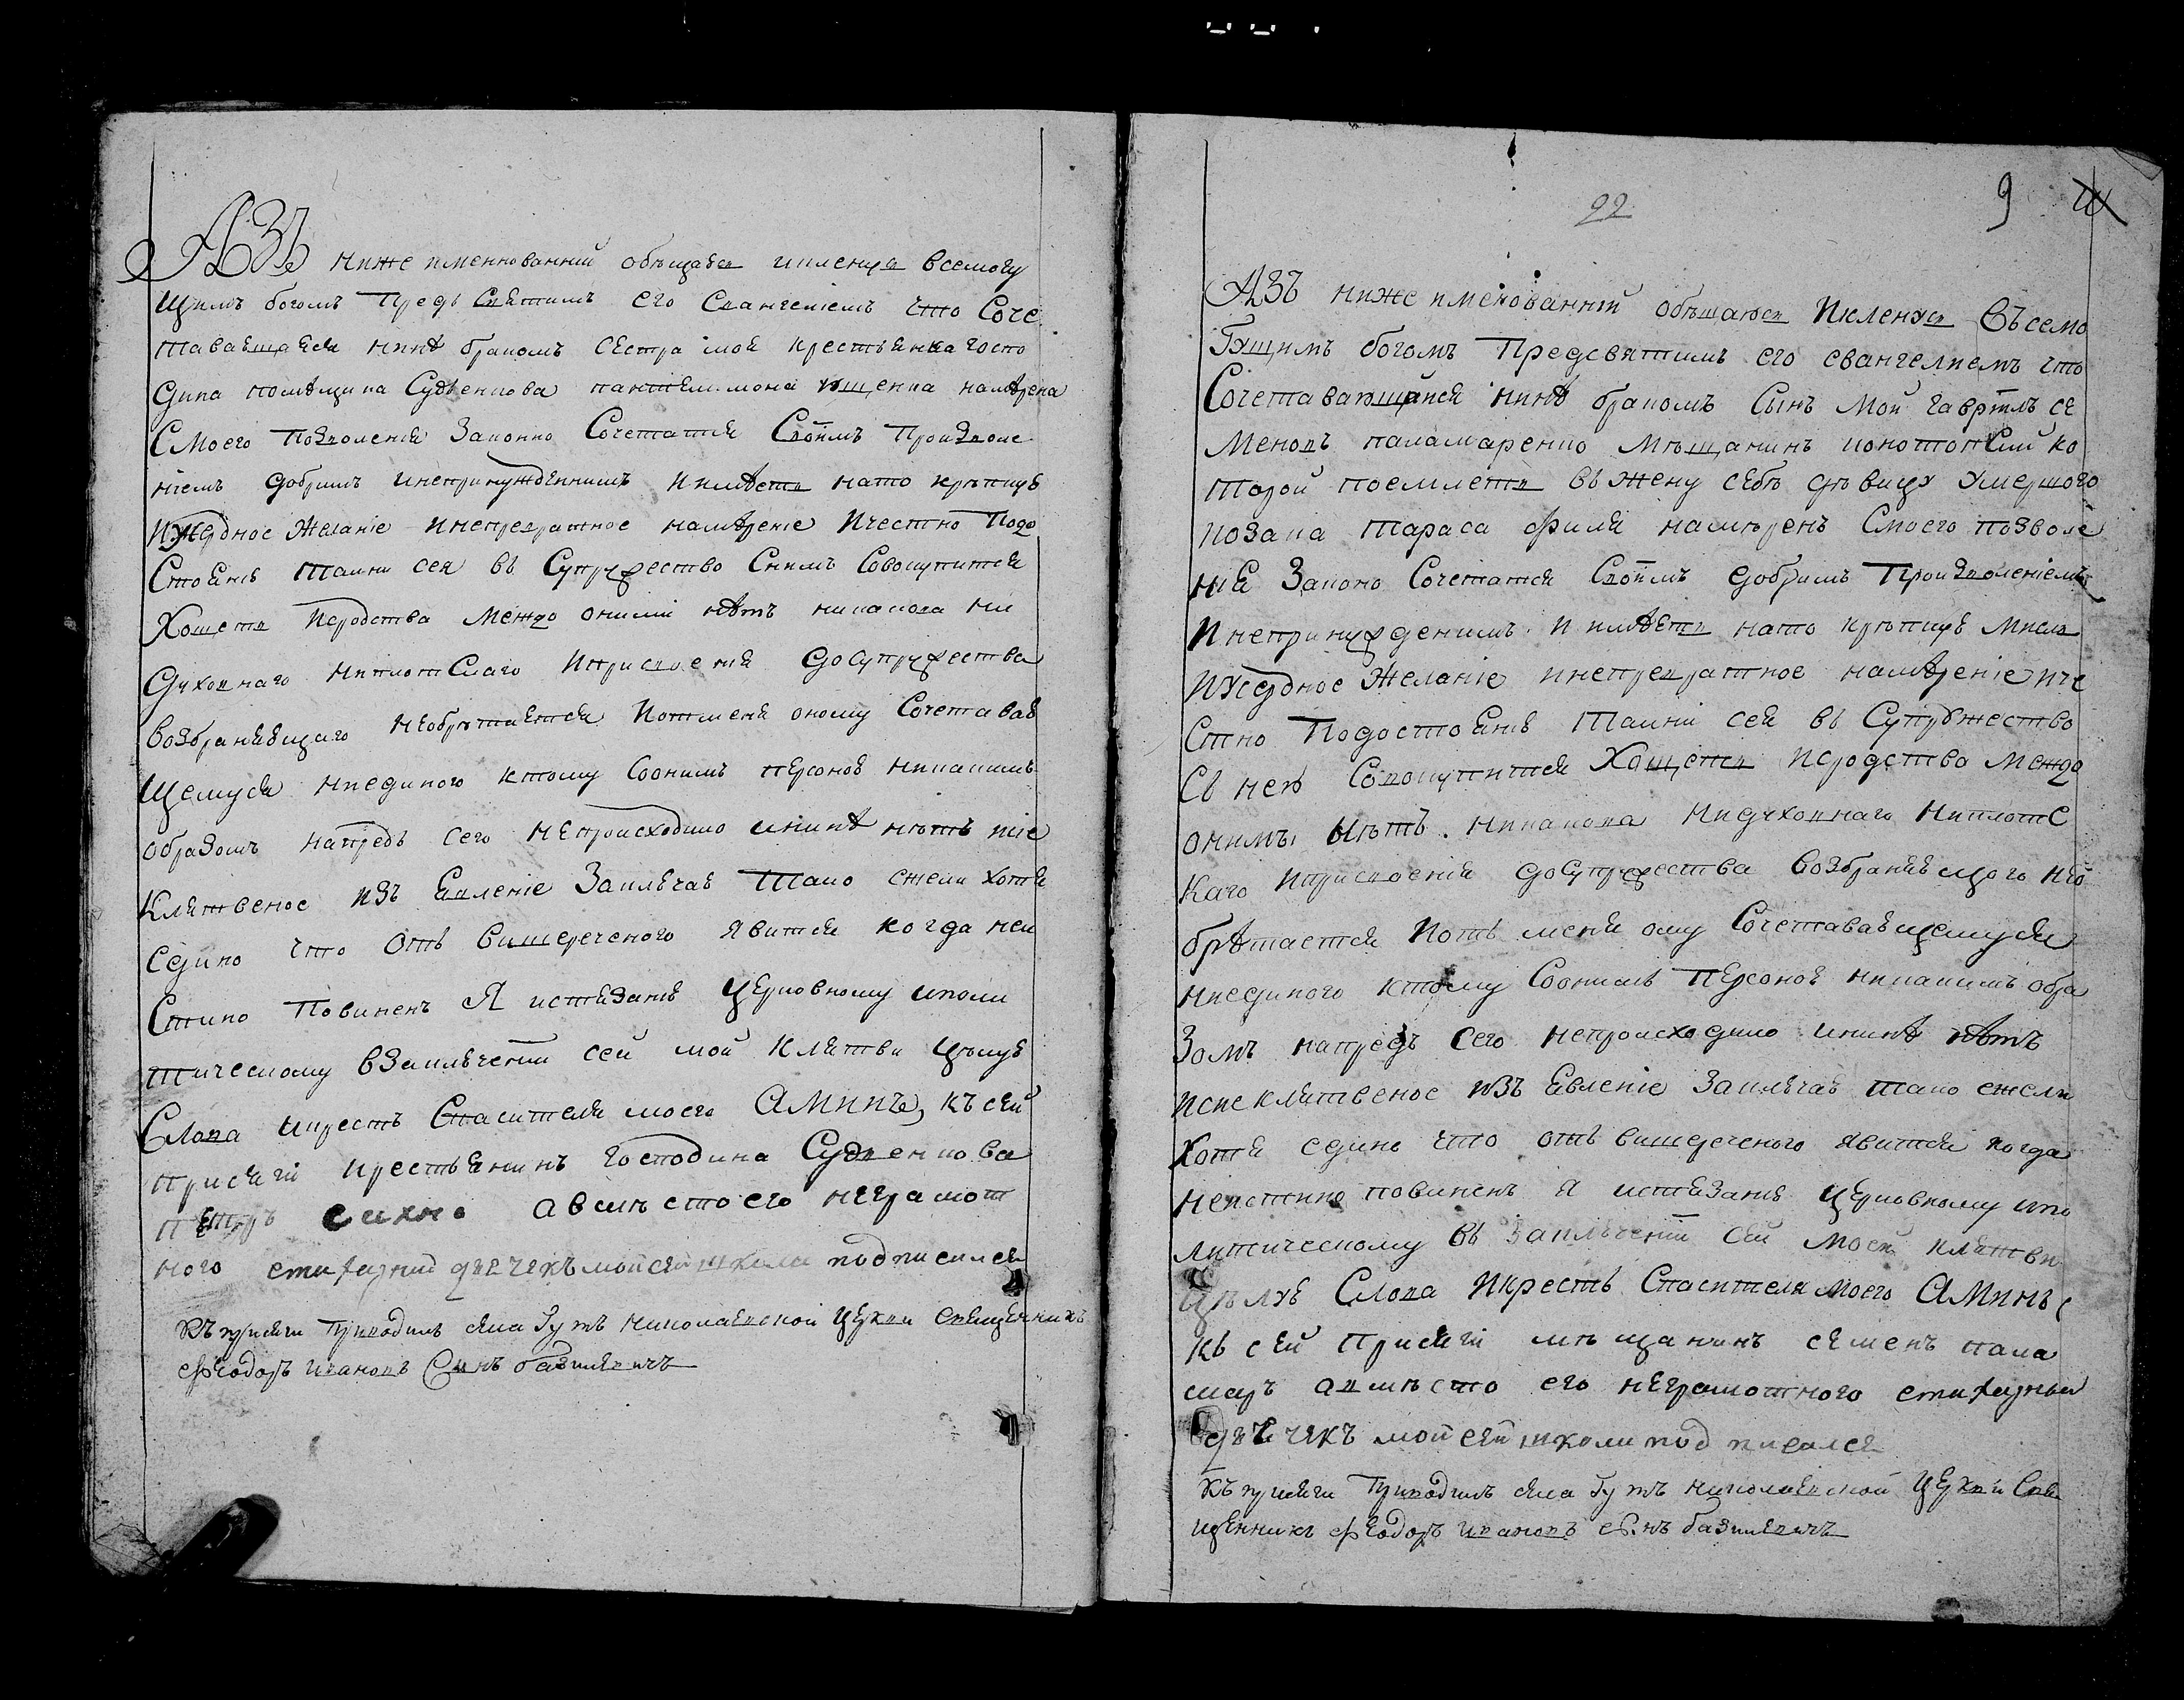 АЗЪ нижеименнованний обѣщаюся иклянуся всемогу
щимъ богомъ Предъ Святимъ его Евангелиемъ что Соче
тавающаяся нинѣ бракомъ сестра моя крестьянка госпо
дина помѣщика Судѣенкова намѣрена
Смоего Позволенія Законно Сочетатся Своимъ Произволе
ніемъ добримъ инепринужденнимъ иимѣетъ нато крѣпкую
иусердное Желаніе инепревратное намѣреніе ичестно Подо
Стоянію Тайни сея въ Супружество Снимъ Совокупится
Хощетъ исродства Между оними нѣтъ никакова ни
Духовнаго ниплотСкаго иприсвоенія доСупружества
возбраняющаго необрѣтается иотменя оному Сочетаваю
щемуся ниединого ктому Соонимъ персоною никакимъ
образомъ напредъ сего непроисходило ининѣ нѣтъ исіе
Клятвеное изъявленіе Заключаю Тако ежели хотя
едино что отъ вишереченого явится когда неи
Стино Повиненъ Я истязанію церковному иполи
тическому взаключеній сей моей клятви цѣлую
Слова икрестъ Спасителя моего АМинъ, къ сей
присягі крестьянинъ господина Судѣенкова
Петръ авмѣстоего неграмот
ного стихарний дячекъ мойсей школа подписался
къ присяги Приводилъ села Гутъ николаевской церкви Священникъ
Феодоръ ивановъ Синъ базилевичъ
22
9
АЗЪ нижеименованний обѣщаюся иклянуся Въсемо
Гущимъ богомъ Предсвятимъ его евангелиемъ что
Сочетаваюшщийся нинѣ бракомъ Сынъ мой гавріилъ се
меновъ паламаренко мѣщанинъ конотопСкий ко
торой поемлетъ въ жену себѣ дѣвицу умершого
козака тараса филя намѣренъ Смоего позволе
нія Законо Сочетатся Своимъ добримъ Произволеніемъ
инепринужденимъ иимѣетъ нато крѣпкую мисль
иусердное Желаніе инепревратное намѣреніе иче
стно Подостоянію Тайні сея въ Супружество
Съ нею Совокупится Хощетъ исродства между
онимы нѣтъ никакова нидуховнаго ниплотС
каго иприсвоенія доСупружества возбраняющого нео
брѣтается иотъ меня ому Сочетавающемуся
ниединого ктому Соонимъ Персоною никакимъ обра
зомъ напредъ сего непроисходило ининѣ нѣтъ
исие клятвеное изъявленіе Заключаю тако ежели
Хотя едино что отъ вишереченого явится когда
неистинно повиненъ я истязанію церковному ипо
литическому въ Заключеній сей моей клятви
Цѣлую Слова икрестъ Спасителя моего АМинъ
къ сей Присягі мѣщанинъ семенъ пала
маръ авмѣсто его неграмотного стихарный
дячекъ мойсей школи подписался
къ присяги Приводилъ села Гутъ николаевской церкви Свя
щенникъ Феодоръ ивановъ Синъ базилевичъ